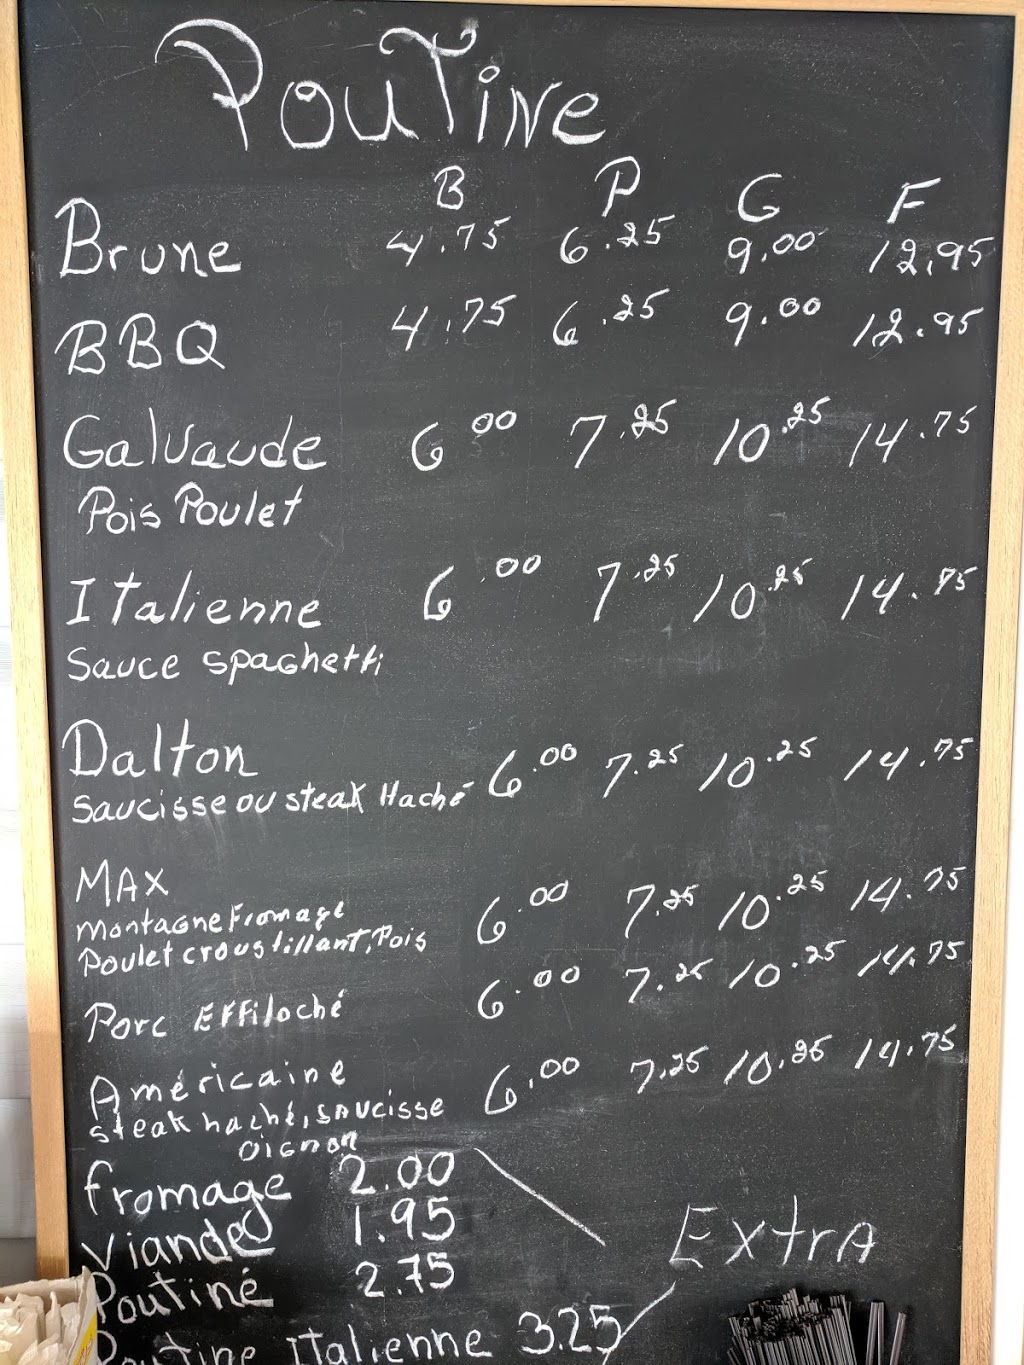 Poutine
B P G F
Brune 4.75 6.25 9.00 12.95
BBQ 4.75 6.25 9.00 12.95
Galvaude 6.00 7.25 10.25 14.75
Pois Poulet
Italienne 6.00 7.25 10.25 14.75
Sauce spaghetti
Dalton 6.00 7.25 10.25 14.75
Saucisse ou steak Haché
MAX 6.00 7.25 10.25 14.75
montagne Fromage
Poulet croustillant, Pois
Porc Effiloché 6.00 7.25 10.25 14.75
Américaine 6.00 7.25 10.25 14.75
steak haché, saucisse
oignon
fromage 2.00
viande 1.95
Extra
Poutiné 2.75
Poutine Italienne 3.25